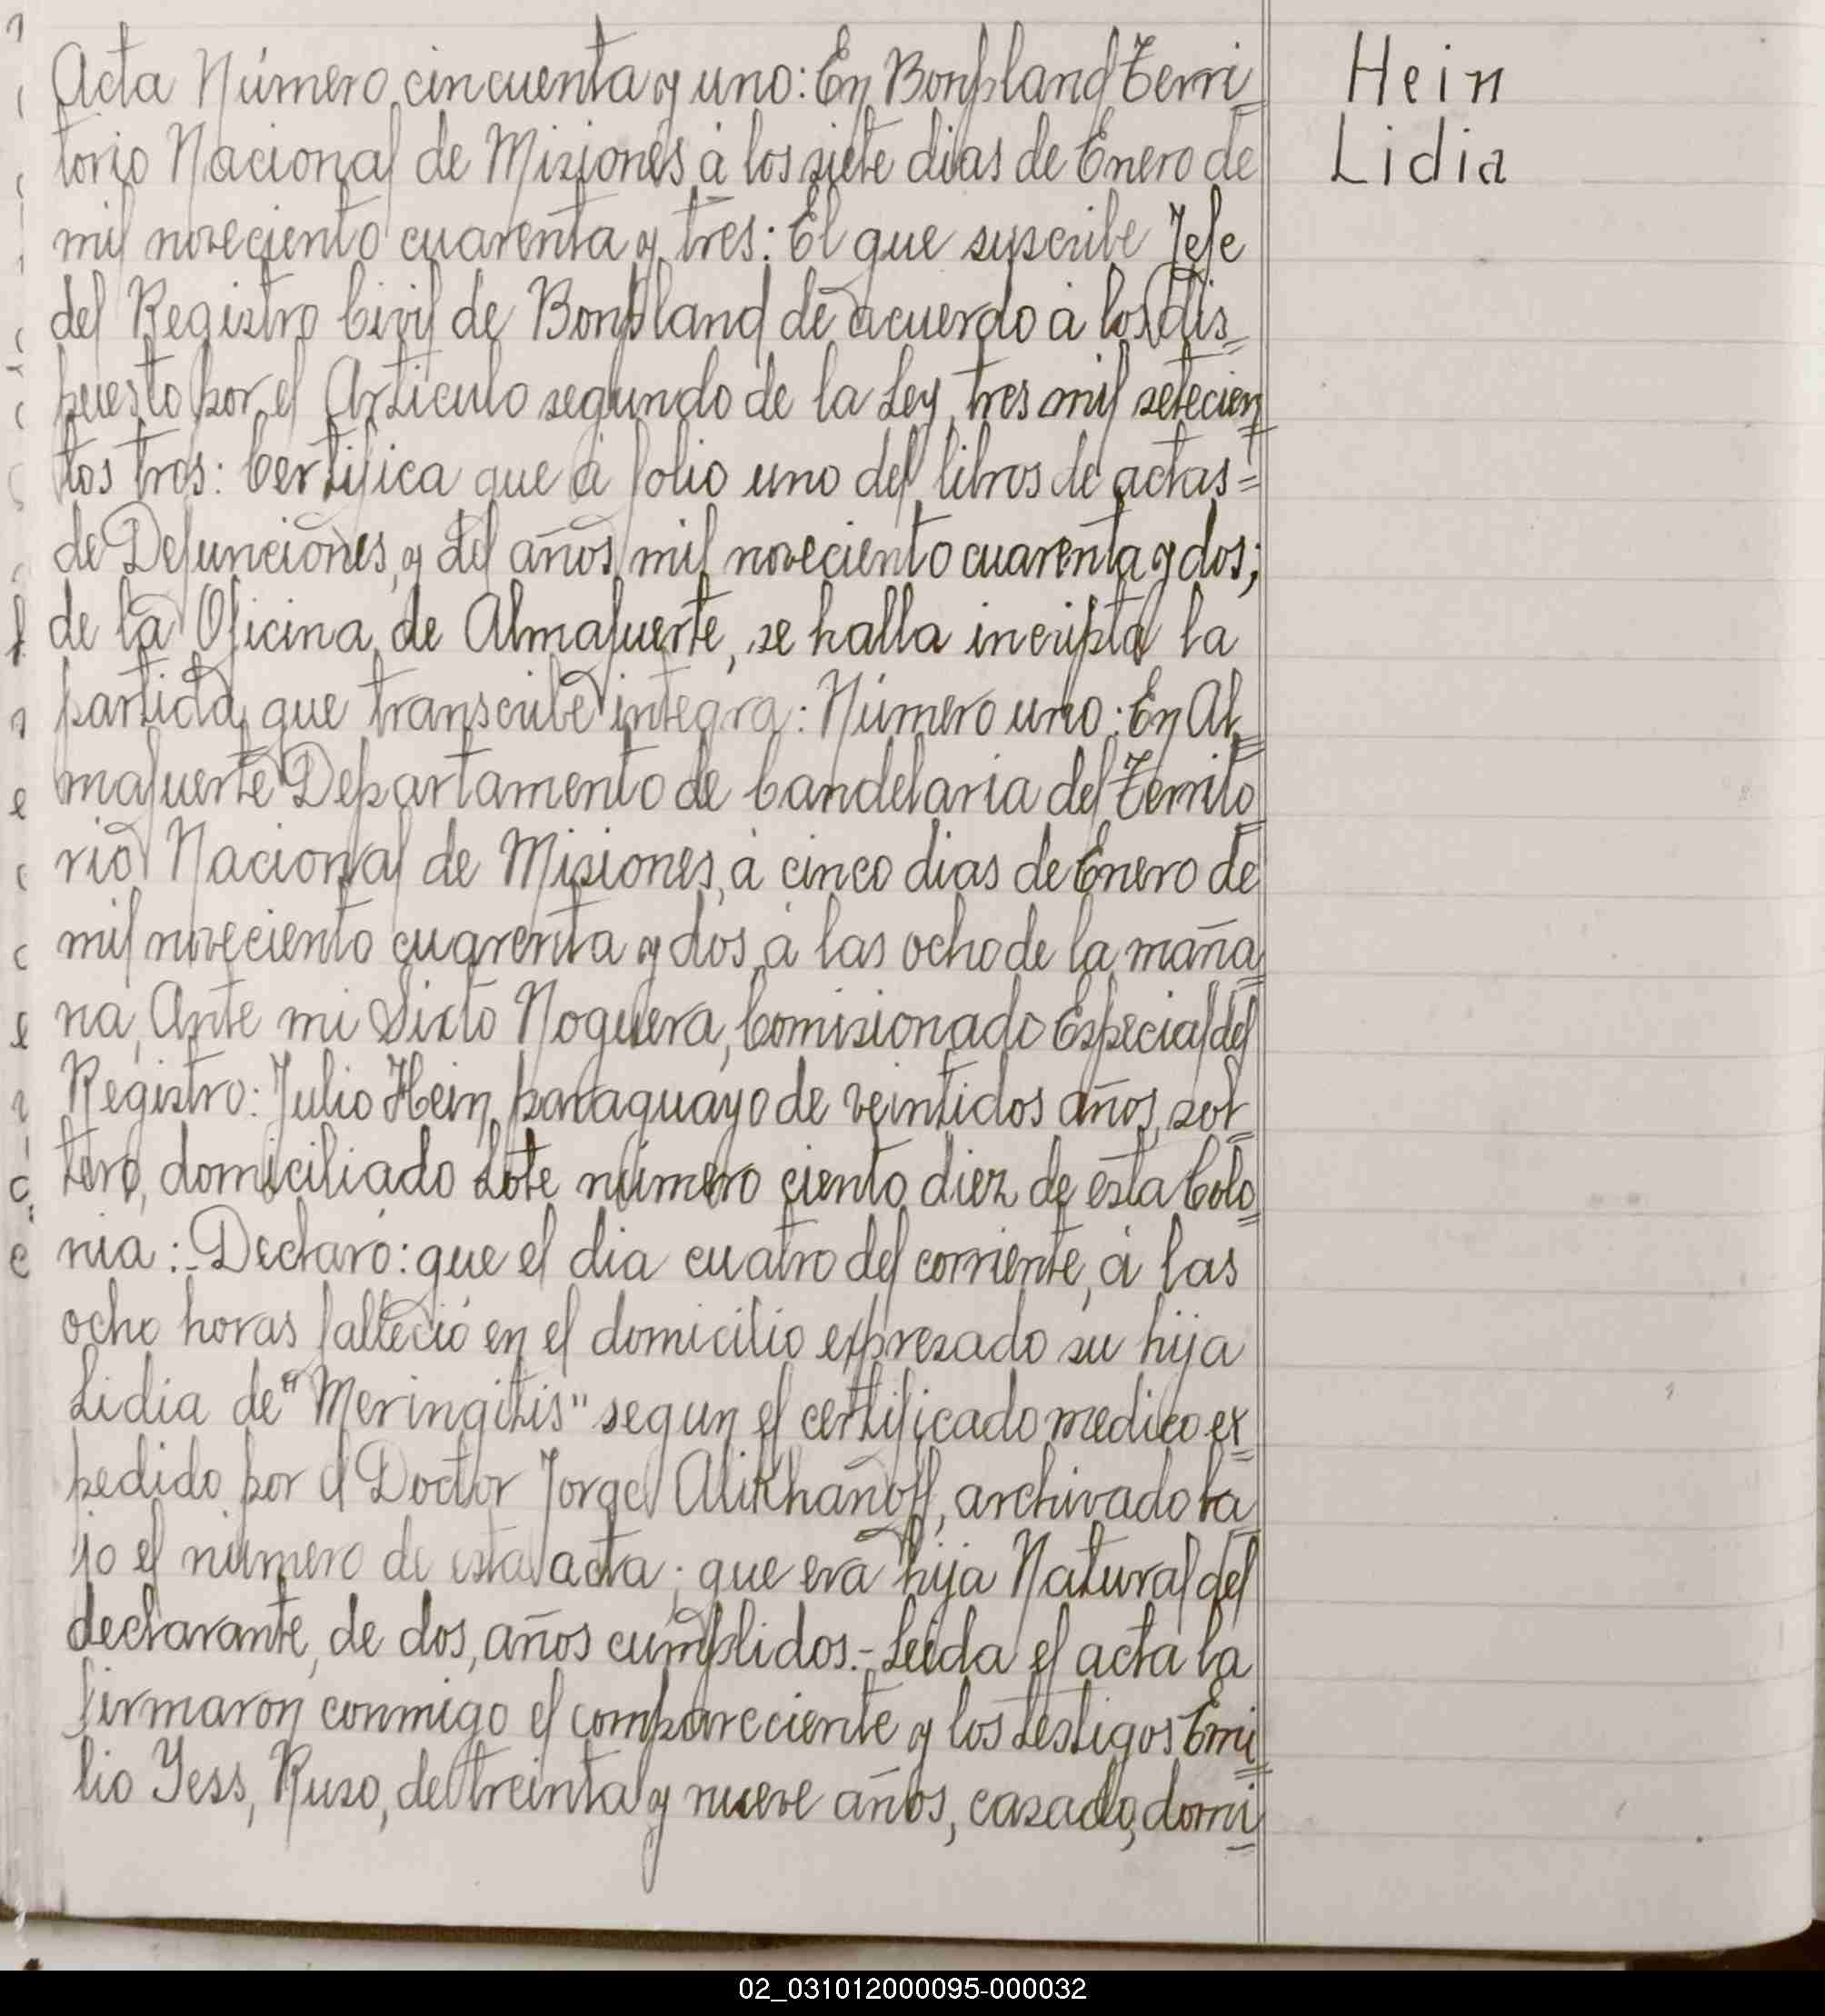 Acta Número cincuenta y uno: En Bonpland Terri=
torio Nacional de Misiones à los siete dias de Enero de
mil noveciento cuarenta y tres: El que suscribe Jefe
del Registro Civil de Bonpland de acuerdo à los dis=
puesto por el Articulo segundo de la Ley tres mil setecien=
tos tres: Certifica que à folio uno del libros de actas=
de Defunciones, y del años mil noveciento cuarenta y dos;
de la Oficina de Almafuerte, se halla incripta la
partida que transcribe integra: Número uno: En Al=
mafuerte Departamento de Candelaria del Territo=
rio Nacional de Misiones, à cinco dias de Enero de
mil noveciento cuarenta y dos, à las ocho de la maña=
na, Ante mi Sixto Noguera, Comisionado Especial del
Registro: Julio Hein, paraguayo de veintidos años, sol=
tero, domiciliado Lote número ciento diez de esta Colo=
nia:- Declaró: que el dia cuatro del corriente, à las
ocho horas falleció en el domicilio expresado su hija
Lidia de "Meringitis" segun el certificado medico ex=
pedido por el Doctor Jorge Alikhanoff, archivado ba=
jo el número de esta acta; que era hija Natural del
declarante, de dos, años cumplidos.- Leida el acta la
firmaron conmigo el compareciente y los testigos Emi=
lio Yess, Ruso, de treinta y nueve años, casado, domi=
Hein
Lidia
02_031012000095-000032